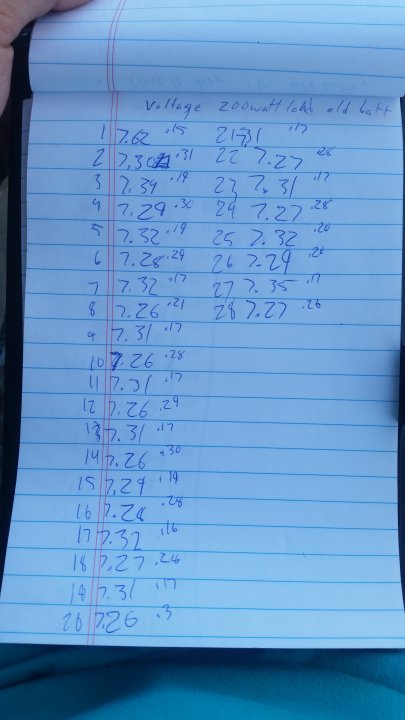 Voltage 200watt load old batt
1 7.62 .15 21 7.31 .17
2 7.30 .31 22 7.27 .28
3 7.34 .19 23 7.31 .17
4 7.29 .30 24 7.27 .28
5 7.32 .19 25 7.32 .20
6 7.28 .29 26 7.29 .20
7 7.32 .17 27 7.35 .17
8 7.26 .21 28 7.27 .26
9 7.31 .17
10 7.26 .28
11 7.31 .17
12 7.26 .29
13 7.31 .17
14 7.26 .30
15 7.29 .19
16 7.28 .28
17 7.32 .16
18 7.27 .28
19 7.31 .17
20 7.26 .3